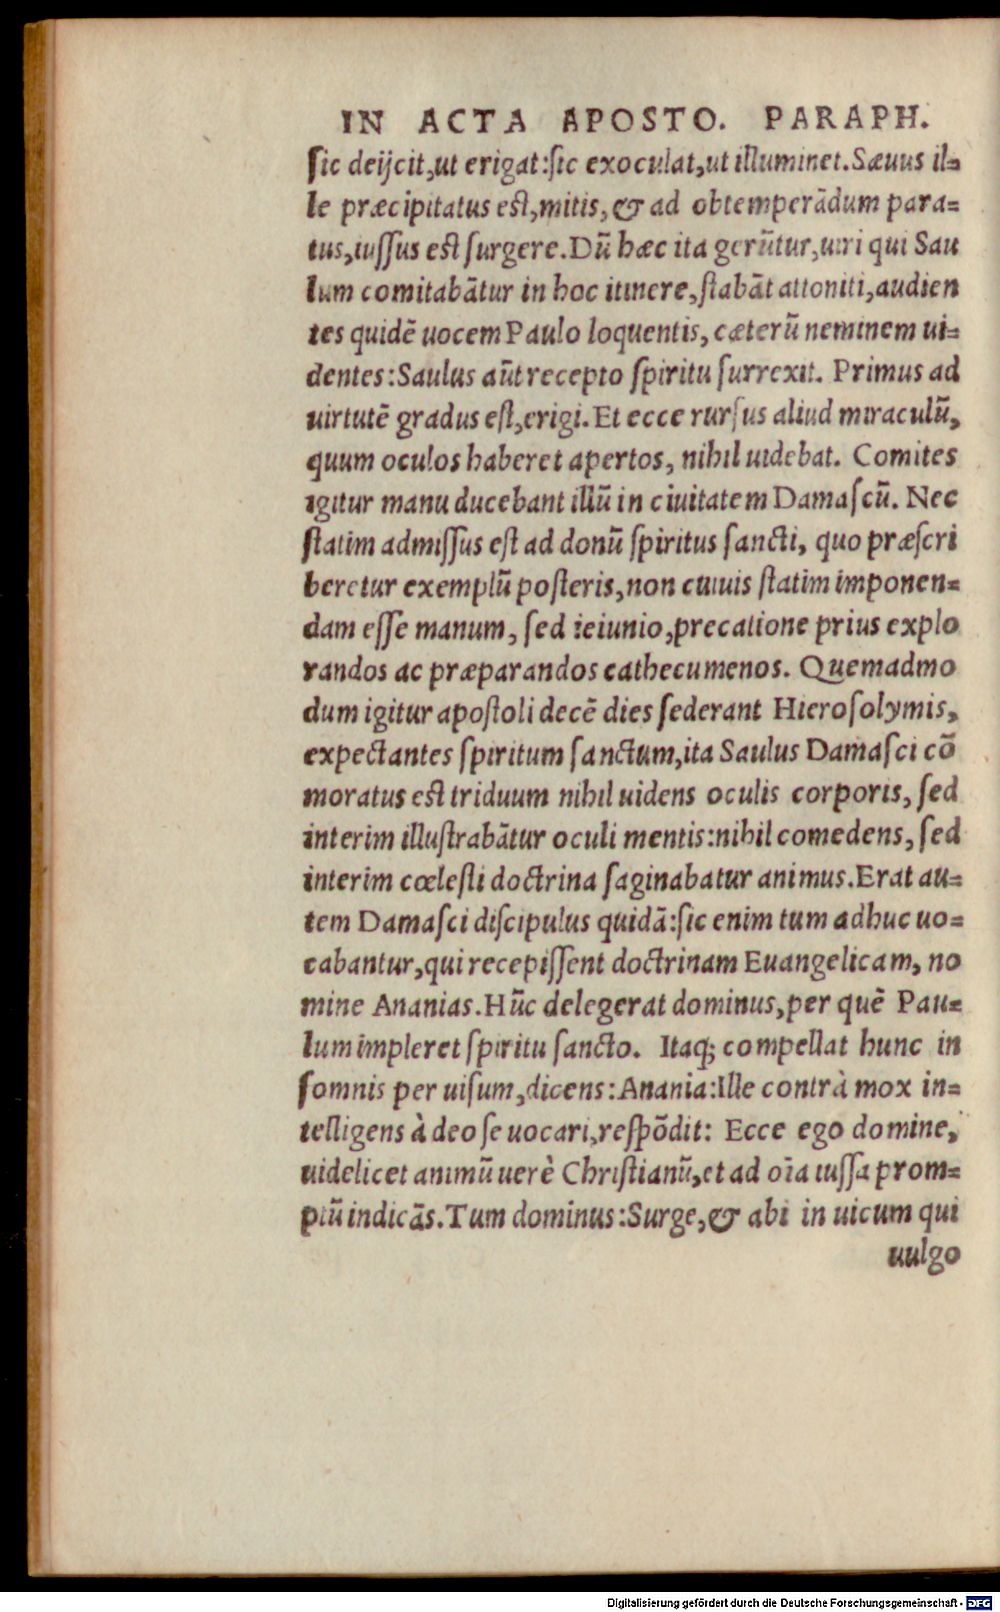 IN ACTA APOSTO. PARAPH.
sic deijcit,ut erigat:sic exoculat,ut illuminet.Sæuus il=
le præcipitatus est,mitis,& ad obtemperãdum para=
tus,iussus est surgere.Dũ hæc ita gerũtur,uiri qui Sau
lum comitabãtur in hoc itinere,stabãt attoniti,audien
tes quidẽ uocem Paulo loquentis, cæterũ neminem ui=
dentes:Saulus aũt recepto spiritu surrexit. Primus ad
uirtutẽ gradus est,erigi.Et ecce rursus aliud miraculũ,
quum oculos haberet apertos, nihil uidebat. Comites
igitur manu ducebant illũ in ciuitatem Damascũ. Nec
statim admissus est ad donũ spiritus sancti, quo præscri
beretur exemplũ posteris,non cuiuis statim imponen=
dam esse manum, sed ieiunio,precatione prius explo
randos ac præparandos cathecumenos. Quemadmo
dum igitur apostoli decẽ dies sederant Hierosolymis,
expectantes spiritum sanctum,ita Saulus Damasci cõ
moratus est triduum nihil uidens oculis corporis, sed
interim illustrabãtur oculi mentis:nihil comedens, sed
interim cœlesti doctrina saginabatur animus.Erat au=
tem Damasci discipulus quidã:sic enim tum adhuc uo=
cabantur,qui recepissent doctrinam Euangelicam, no
mine Ananias.Hũc delegerat dominus,per quẽ Pau=
lum impleret spiritu sancto. Itaq; compellat hunc in
somnis per uisum,dicens:Anania:Ille contrà mox in=
telligens à deo se uocari,respõdit: Ecce ego domine,
uidelicet animũ uerè Christianũ,et ad oĩa iussa prom=
ptũ indicãs.Tum dominus:Surge,& abi in uicum qui
uulgo
Digitalisierung gefördert durch die Deutsche Forschungsgemeinschaft - DFG